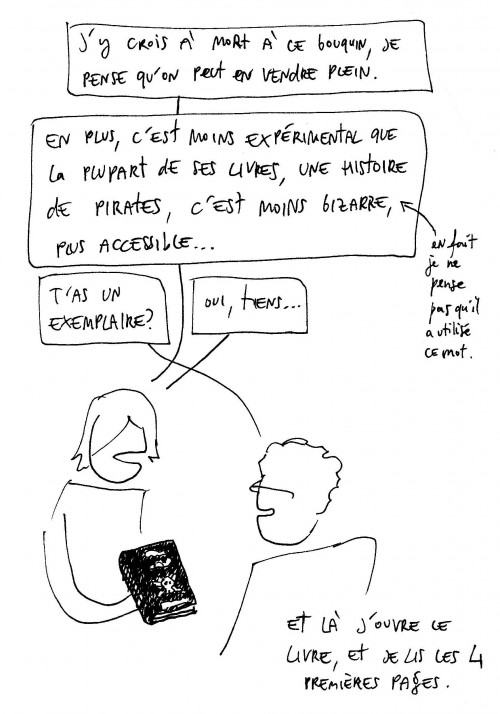 J'Y CROIS À MORT À CE BOUQUIN, JE
PENSE QU'ON PEUT EN VENDRE PLEIN.
EN PLUS, C'EST MOINS EXPÉRIMENTAL QUE
LA PLUPART DE SES LIVRES, UNE HISTOIRE
DE PIRATES, C'EST MOINS BIZARRE,
PLUS ACCESSIBLE...
en fait
je ne
pense
pas qu'il
a utilisé
ce mot.
T'AS UN
EXEMPLAIRE?
OUI, TIENS...
ET LÀ J'OUVRE LE
LIVRE, ET JE LIS LES 4
PREMIÈRES PAGES.